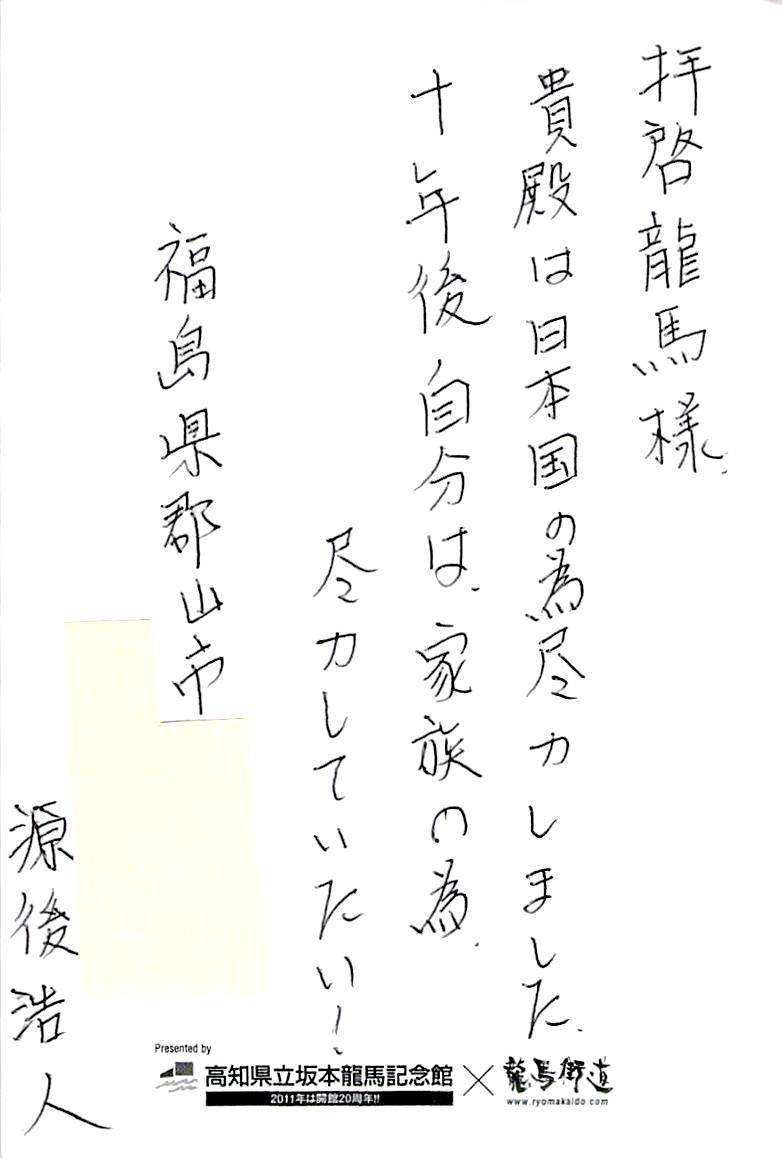 拝啓龍馬様
貴殿は日本国の為尽力しました.
十年後自分は、家族の為、
尽力していたい!
福島県郡山市
源後浩人
Presented by
高知県立坂本龍馬記念館
2011年は開館20周年!!
×
龍馬街道
www.ryomakaido.com